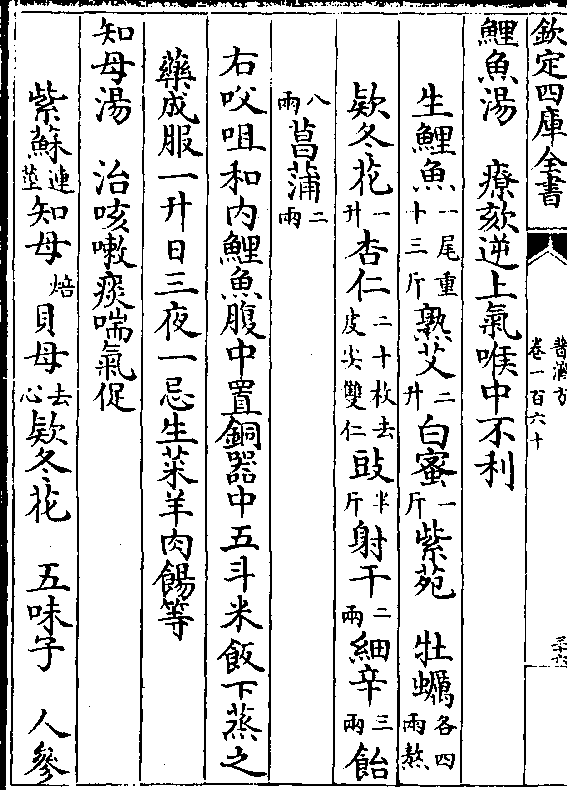 欽定四庫全書
普濟方
卷一百六十
鯉魚湯　療欬逆上氣喉中不利
生鯉魚一尾重十三斤熟艾二升白蜜一斤紫苑　牡蠣各四兩熬
欵冬花一升杏仁二十枚去皮尖雙仁豉半斤射干二兩細辛三兩飴
八兩菖蒲二兩
右㕮咀和内鯉魚腹中置銅器中五斗米飯下蒸之
藥成服一升日三夜一忌生菜羊肉餳等
知母湯　治咳嗽痰喘氣促
紫蘇連莖知母焙貝母去心欵冬花　五味子　人參